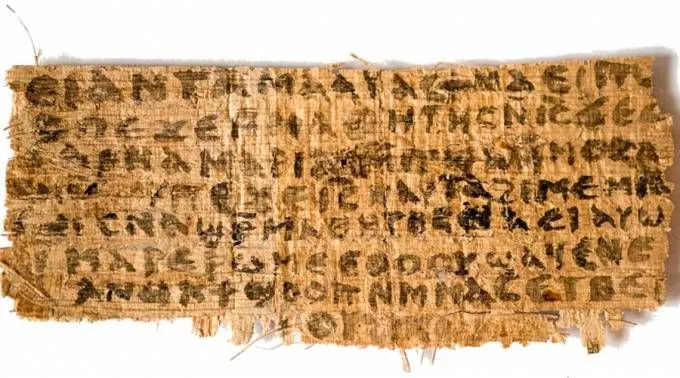 ⲉⲓ ⲁⲛ ⲧⲁⲙⲁⲁⲩ ⲁⲥϯ ⲛⲁⲉⲓ ⲡⲱ
ⲡⲉϫⲉ ⲙⲙⲁⲑⲏⲧⲏⲥ ⲛⲓⲥ ϫⲉ ⲥ
ⲁⲣⲛⲁ ⲙⲁⲣⲓⲁⲙ ⲙⲡϣⲁ ⲙⲙⲟⲥ ⲁ
ⲡⲉϫⲉ ⲓⲥ ⲛⲁⲩ ⲧⲁϩⲓⲙⲉ ⲙⲛ
ⲥⲛⲁϣⲣ ⲙⲁⲑⲏⲧⲏⲥ ⲛⲁⲉⲓ ⲁⲩⲱ
ⲓ ⲙⲁⲣⲉ ⲣⲱⲙⲉ ⲉⲑⲟⲟⲩ ϣⲁϥⲉ ⲛⲉ
ⲁⲛⲟⲕ ϯϣⲟⲟⲡ ⲛⲙⲙⲁⲥ ⲉⲧⲃⲉ